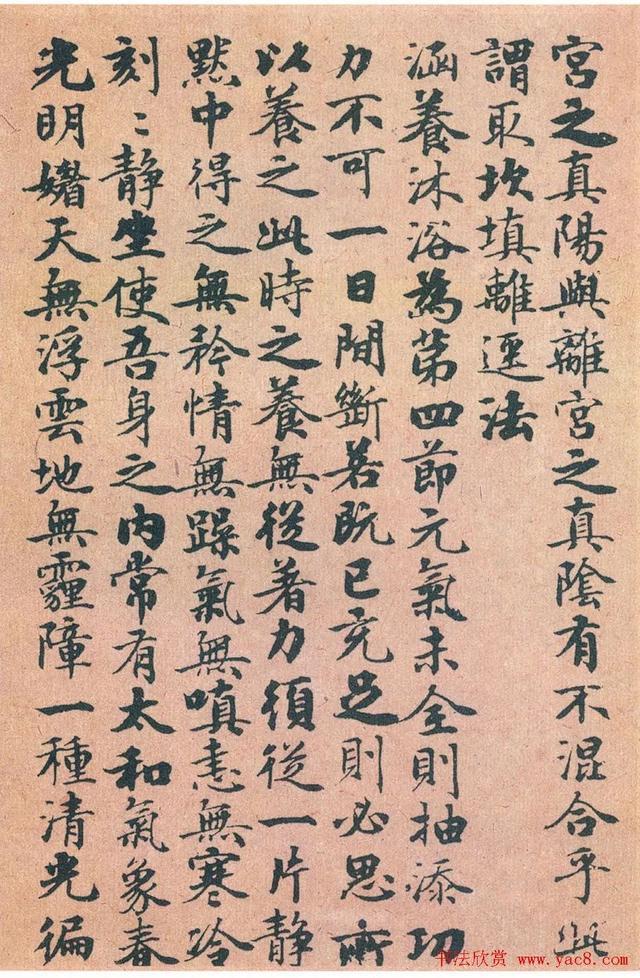 宮之真陽與離宮之真陰有不混合乎與
謂取坎填離逕法
涵養沐浴為第四節元氣未全則抽添功
力不可一日間斷若既已充足則必思所
以養之此時之養無從著力須從一片靜
默中得之無矜情無躁氣無嗔恚無寒冷
刻〻靜坐使吾身之內常有太和氣象春
光明媚天無浮雲地無霾障一種清光徧
书法欣赏 www.yac8.com